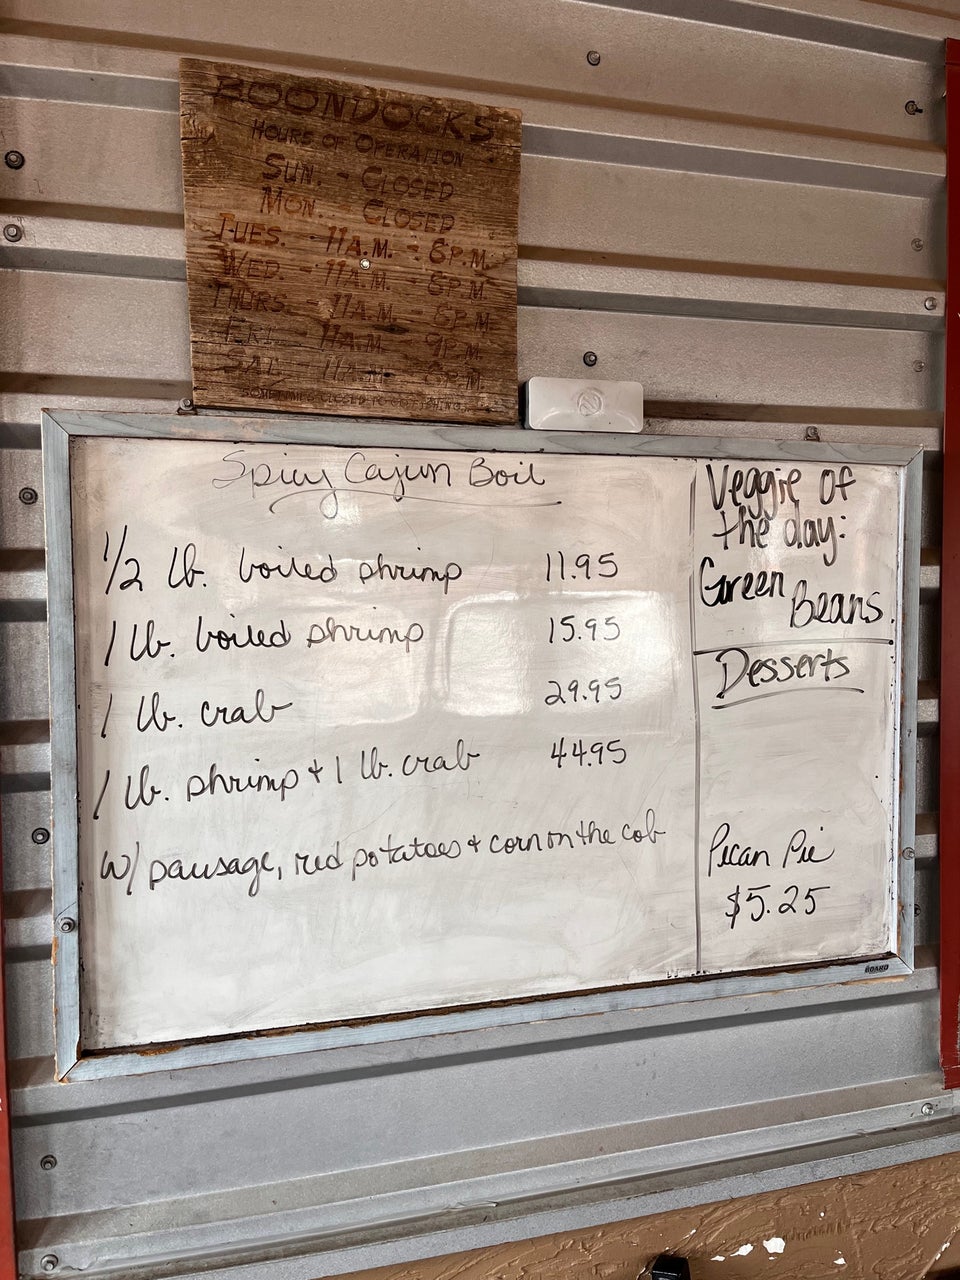 BOONDOCKS
HOURS OF OPERATION
SUN. - CLOSED
MON. CLOSED
TUES. - 11A.M. - 8P.M.
WED. - 11A.M. - 8P.M
THURS. - 11A.M. - 8P.M.
FRI. 11A.M. 9P.M.
SAT. 11A.M. 8P.M.
SOMETIMES CLOSED TO GO FISHING
Spicy Cajun Boil
1/2 lb. boiled shrimp 11.95
1 lb. boiled shrimp 15.95
1 lb. crab 29.95
1 lb. shrimp + 1 lb. crab 44.95
w/ sausage, red potatoes + corn on the cob
Veggie of
the day:
Green
Beans.
Desserts
Pecan Pie
$5.25
BOARD